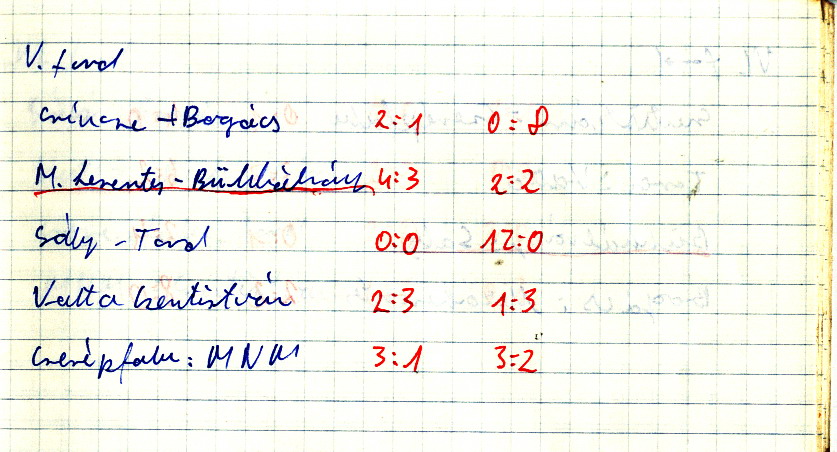 V. ford
Csincse + Bogács 2:1 0=8
M. Keresztes - Bükkábrány 4:3 2:2
Sály - Tard 0:0 12:0
Vatta Szentistván 2:3 1:3
Cserépfalu: MNM 3:1 3:2